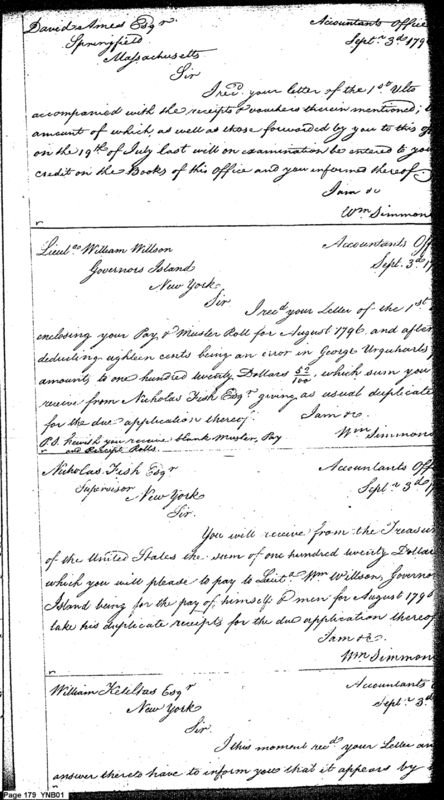 David Ames Esqr
Accountants Office
Springfield
Septr 3d 179
Massachusetts
Sir
I recd. your letter of the 1st Ulto
accompanied with the receipts & vouchers therein mentioned;
amount of which, as well as those forwarded by you to this
on the 19th of July last will on examination be entered to
credit on the Books of this Office and you informed thereof.
I am &c
Wm Simmon
Lieut William Willson
Accountants Off
Governors Island
Sept. 3d 17
New York
Sir
I recd your Letter of the 1st
enclosing your Pay & Muster Roll for August 1796 and after
deducting eighteen cents being an error in George Urquharts
amounts to one hundred twenty Dollars 52/100, which sum you
receive from Nicholas Fish Esqr giving as usual duplicate
for the due application thereof.
I am &c.
P.S. herewith you receive blank Muster, Pay
Wm Simmons
and Receipt Rolls.
Nicholas Fish Esqr
Accountants Off
Supervisor
Septr 3d 17
New York
Sir.
You will receive from the Treasur
of the United States the sum of one hundred twenty Dollar
which you will please to pay to Lieut Wm Willson, Governor
Island being for the pay of himself & men for August 1796
take his duplicate receipts for the due application thereof
I am &c.
Wm Simmon
William Keteltas Esqr
Accountants
New York
Septr 3d
Sir.
I this moment recd your Letter an
answer thereto have to inform you that it appears by
Page 179 YNB01